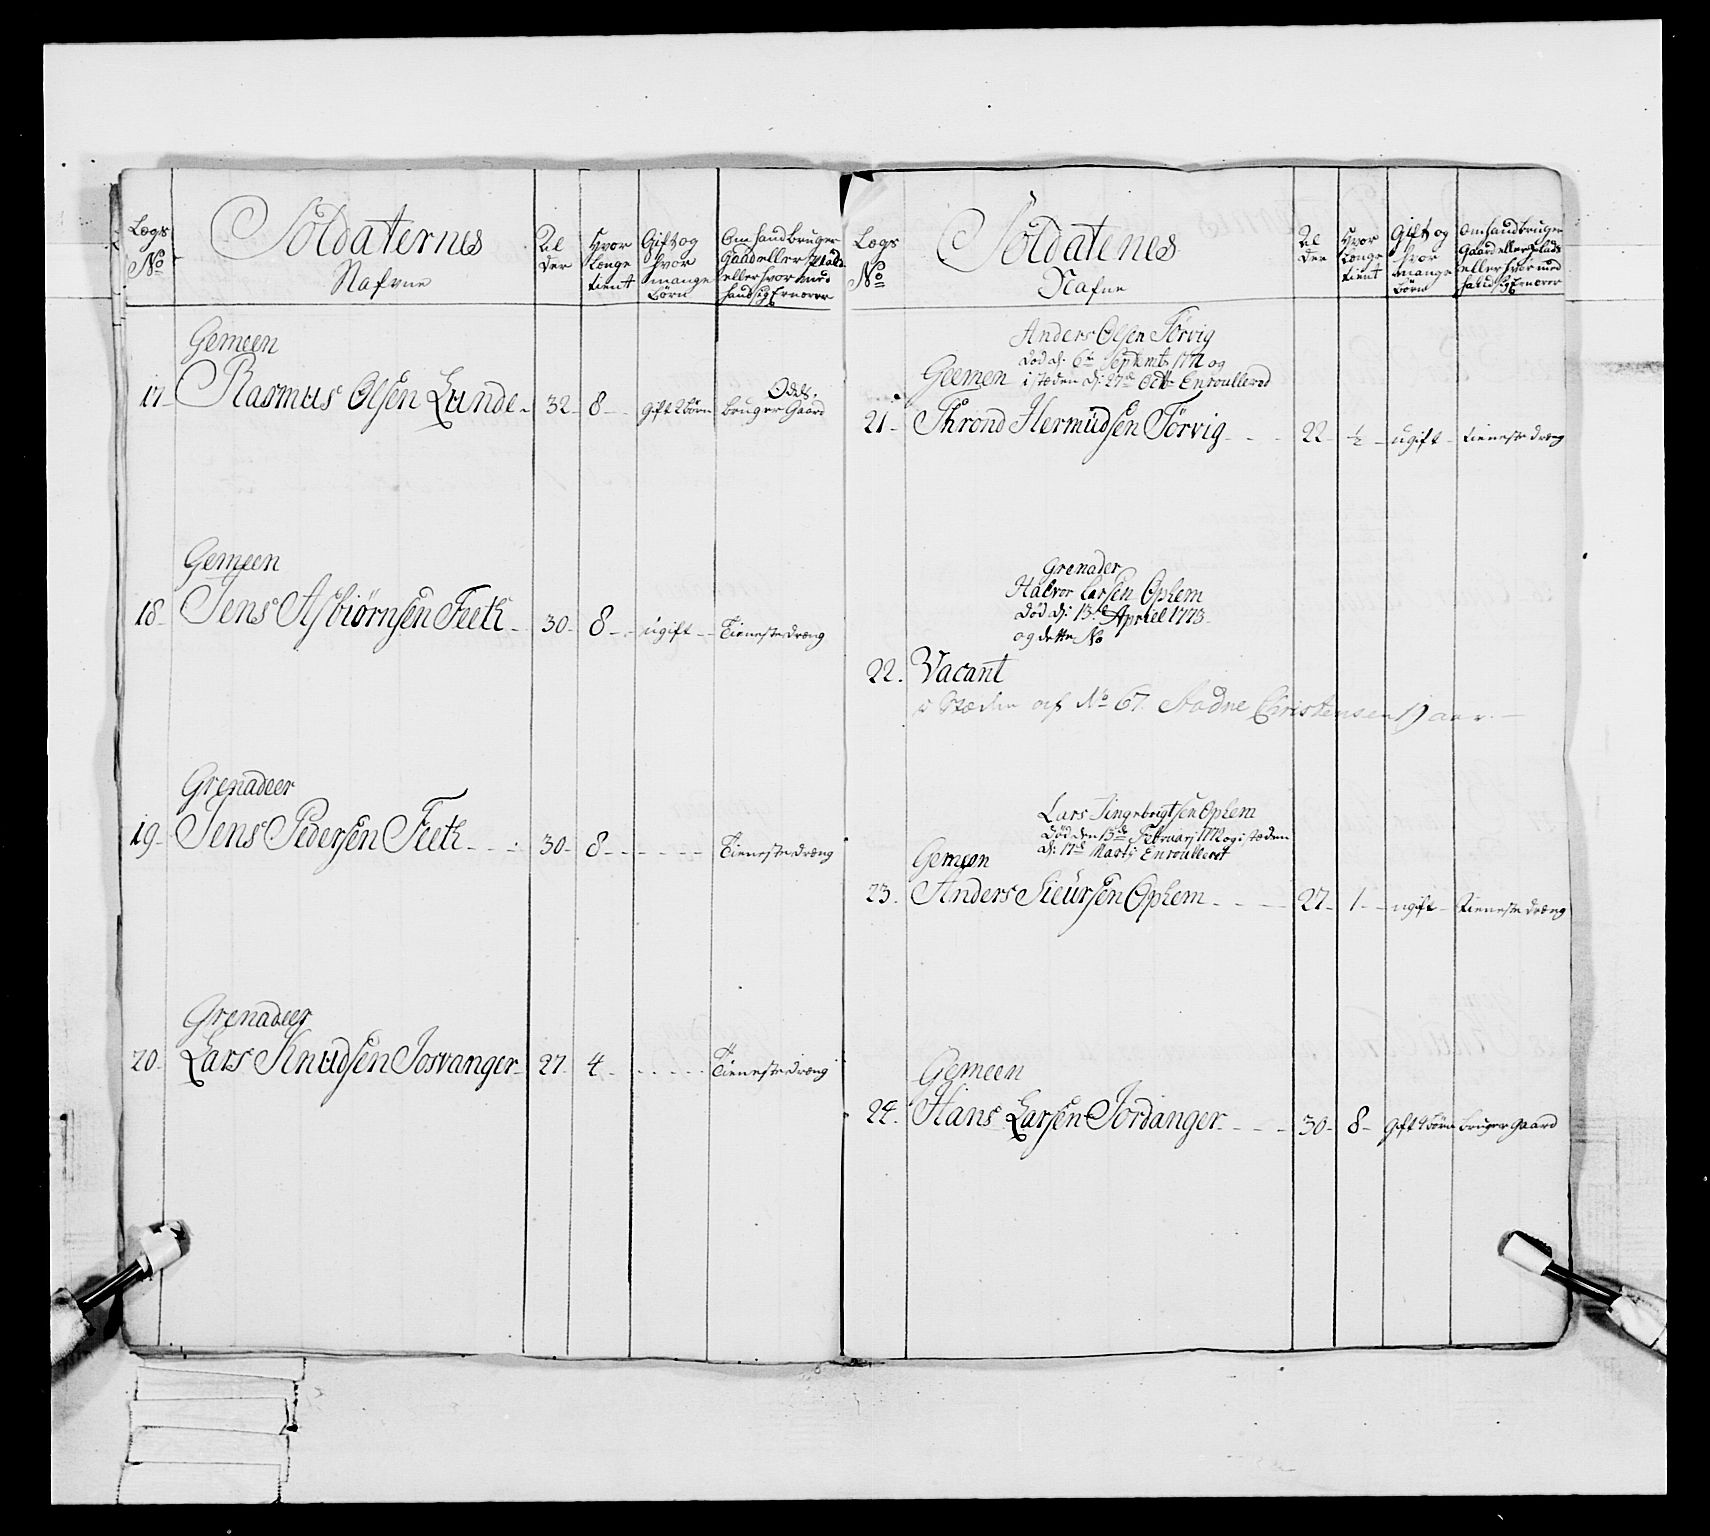 Lægs
No
Soldaternes
Nafvne
Al
der
Hvor
længe
tient
Gift og
hvor
mange
börn
Om hand bruger
Gaard eller Plads
eller hvor med
hand sig Ernærer
Gemeen
17 Rasmus Olsen Lunde 32 8 gift 2 börn Odels.
bruger Gaard
Gemeen
18 Jens Asbiörnsen Feeth 30 8 ugift Tieneste dræng
Grenadeer
19 Jens Pedersen Feeth 30 8 Tieneste dræng
Grenadeer
20 Lars Knudsen Josvanger 27 4 Tieneste dræng
Lægs
No
Soldatenes
Nafne
Al
der
Hvor
længe
tient
Gift og
hvor
mange
börn
Om hand bruger
Gaard eller plads
eller hvor med
hand sig Ernærer
Anders Olsen Törvig
död d: 6te Septembr 1772 og
Geemen i stæden d: 27de Octbr Enroullered
21 Thrond Hermudsen Törvig 22 ½ ugift tieneste dræng
Grenader
Halvor Larsen Ophem
död d: 13de Apriel 1773
og dette No
22. Vacant
i Stæden af No 67. Aadne Christensen 19 aar.
Lars Jingebrigtsen Ophem
död den 15de Februarj 1772 og i stæden
d: 17de Martj Enroulleret
Gemeen
23. Anders Sieursen Ophem 27 1 ugift tieneste dræng
Gemeen
24. Hans Larsen Jordanger 30 8 gift 1 börn bruger gaard